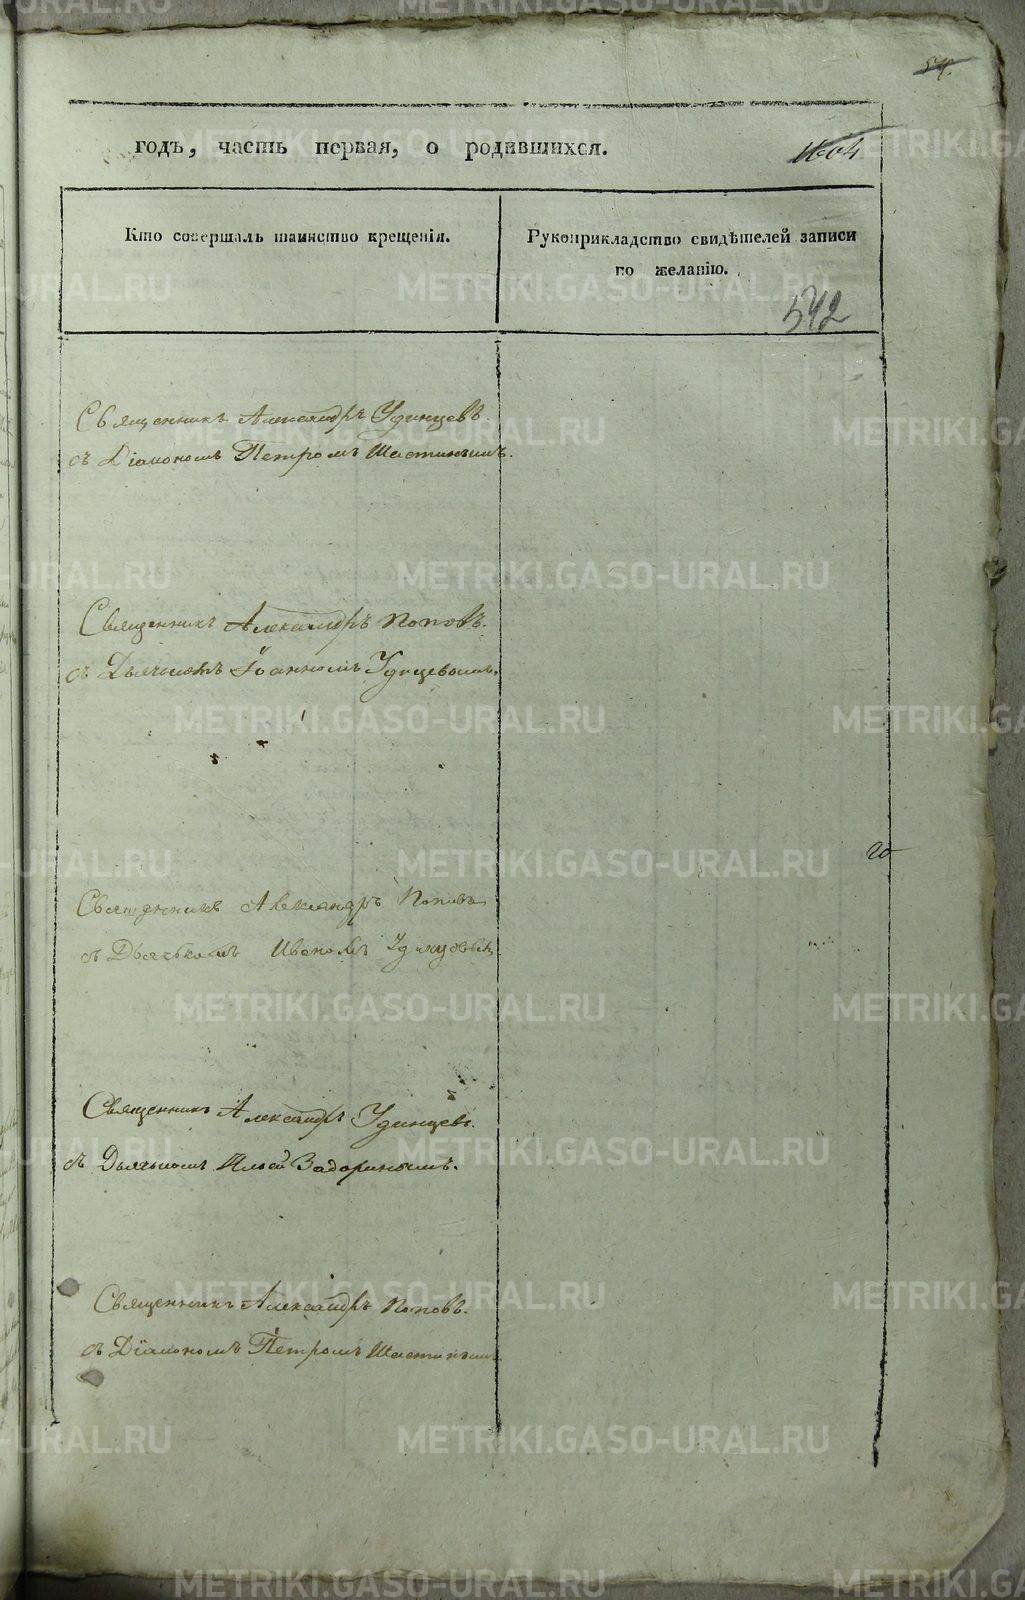 54.
годъ, часть первая, о родившихся.
1604
Кто совершалъ таинство крещенія.
Рукоприкладство свидѣтелей записи
по желанію.
542
Священникъ Александръ Удинцевъ.
съ Діакономъ Петромъ Шастинымъ.
Священникъ Александръ Поповъ.
съ Дьячкомъ Іоанномъ Удинцевымъ.
20
Священникъ Александръ Поповъ
съ Дьячькомъ Иваномъ
Священникъ Александръ Удинцевъ.
съ Дьячкомъ Ильей Задоринымъ.
Священникъ Александръ Поповъ.
съ Діакономъ Петромъ Шастинымъ
METRIKI.GASO-URAL.RU